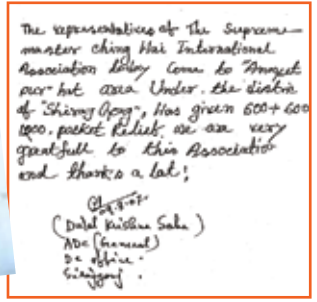 The representatives of The Supreme
master ching Hai International
Association today come to "Amgut
pur" hut area Under. the distric
of "Shiraj Gonj", Has given 600+600
packet Relief, we are very
greatfull to this Association
and thanks a lat;
(Dulal Krishna Saha)
ADC (General)
Dc office.
Sirajgonj.